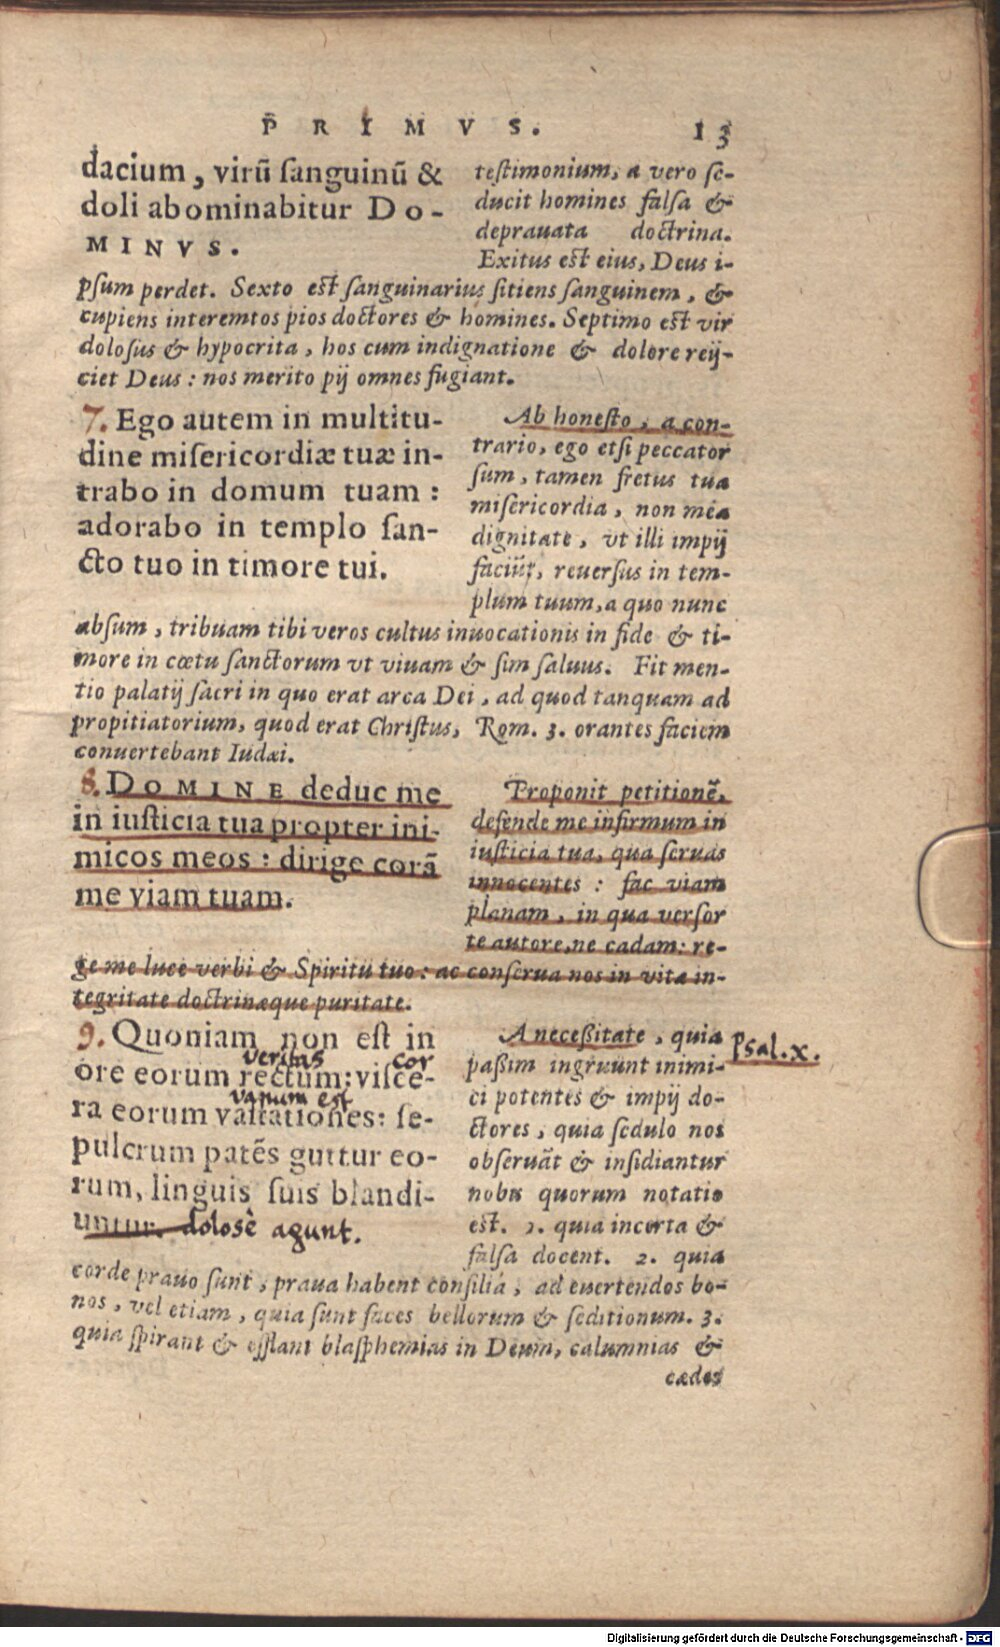 PRIMVS. 13
dacium, virū sanguinū &
doli abominabitur Do-
MINVS.
testimonium, a vero se-
ducit homines falsa &
deprauata doctrina.
Exitus est eius, Deus i-
psum perdet. Sexto est sanguinarius sitiens sanguinem, &
cupiens interemtos pios doctores & homines. Septimo est vir
dolosus & hypocrita, hos cum indignatione & dolore reij-
ciet Deus: nos merito pij omnes fugiant.
7. Ego autem in multitu-
dine misericordiæ tuæ in-
trabo in domum tuam:
adorabo in templo san-
cto tuo in timore tui.
Ab honesto, a con-
trario, ego etsi peccator
sum, tamen fretus tua
misericordia, non mea
dignitate, vt illi impij
faciūt, reuersus in tem-
plum tuum, a quo nunc
absum, tribuam tibi veros cultus inuocationis in fide & ti-
more in cœtu sanctorum vt viuam & sim saluus. Fit men-
tio palatij sacri in quo erat arca Dei, ad quod tanquam ad
propitiatorium, quod erat Christus, Rom. 3. orantes faciem
conuertebant Iudæi.
8. DOMINE deduc me
in iusticia tua propter ini-
micos meos: dirige corā
me viam tuam.
Proponit petitionē,
defende me infirmum in
iusticia tua, qua seruas
innocentes: fac viam
planam, in qua versor
te autore, ne cadam: re-
ge me luce verbi & Spiritu tuo: ac conserua nos in vitæ in-
tegritate doctrinæque puritate.
9. Quoniam non est in
veritas cor
ore eorum rectum: visce-
vanum est
ra eorum vastationes: se-
pulcrum patēs guttur eo-
rum, linguis suis blandi-
untur. dolosè agunt.
A necessitate, quia
passim ingruunt inimi-
ci potentes & impij do-
ctores, quia sedulo nos
obseruāt & insidiantur
nobis quorum notatio
est. 1. quia incerta &
falsa docent. 2. quia
Psal. x.
corde prauo sunt, praua habent consilia, ad euertendos bo-
nos, vel etiam, quia sunt faces bellorum & seditionum. 3.
quia spirant & efflant blasphemias in Deum, calumnias &
cædes
Digitalisierung gefördert durch die Deutsche Forschungsgemeinschaft - DFG